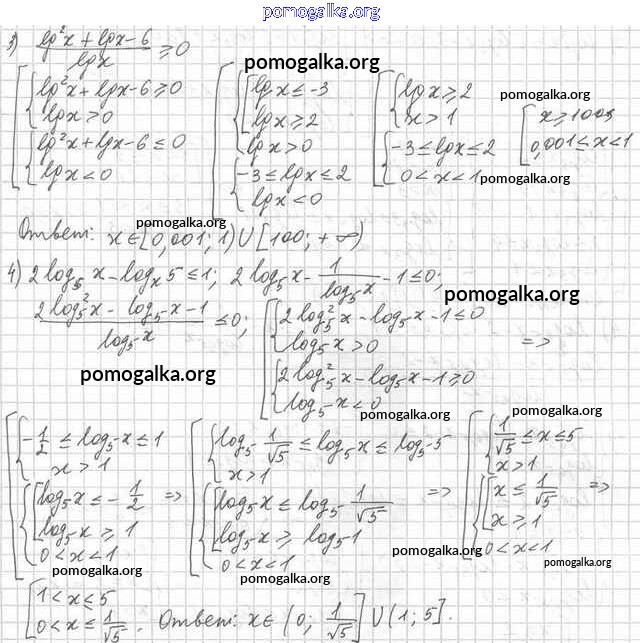 pomogalka.org
3) (lg²x + lgx - 6)/lgx ⩾ 0
pomogalka.org
[ { lg²x + lgx - 6 ⩾ 0
lgx > 0
{ lg²x + lgx - 6 ⩽ 0
lgx < 0
[ { [ lgx ⩽ -3
lgx ⩾ 2
lgx > 0
{ -3 ⩽ lgx ⩽ 2
lgx < 0
[ { lgx ⩾ 2
x > 1
{ -3 ⩽ lgx ⩽ 2
0 < x < 1
pomogalka.org
pomogalka.org
[ x ⩾ 100
0,001 ⩽ x < 1
pomogalka.org
Ответ: x ∈ [0,001; 1) ∪ [100; +∞)
4) 2 log₅ x - logₓ 5 ⩽ 1; 2 log₅ x - 1/(log₅ x) - 1 ⩽ 0;
pomogalka.org
(2 log₅² x - log₅ x - 1)/(log₅ x) ⩽ 0;
[ { 2 log₅² x - log₅ x - 1 ⩽ 0
log₅ x > 0
{ 2 log₅² x - log₅ x - 1 ⩾ 0
log₅ x < 0
=>
pomogalka.org
pomogalka.org
pomogalka.org
[ { -1/2 ⩽ log₅ x ⩽ 1
x > 1
{ [ log₅ x ⩽ -1/2
log₅ x ⩾ 1
0 < x < 1
=>
[ { log₅ 1/√5 ⩽ log₅ x ⩽ log₅ 5
x > 1
{ [ log₅ x ⩽ log₅ 1/√5
log₅ x ⩾ log₅ 1
0 < x < 1
=>
[ { 1/√5 ⩽ x ⩽ 5
x > 1
{ [ x ⩽ 1/√5
x ⩾ 1
0 < x < 1
=>
pomogalka.org
pomogalka.org
pomogalka.org
[ 1 < x ⩽ 5
0 < x ⩽ 1/√5. Ответ: x ∈ (0; 1/√5] ∪ (1; 5].